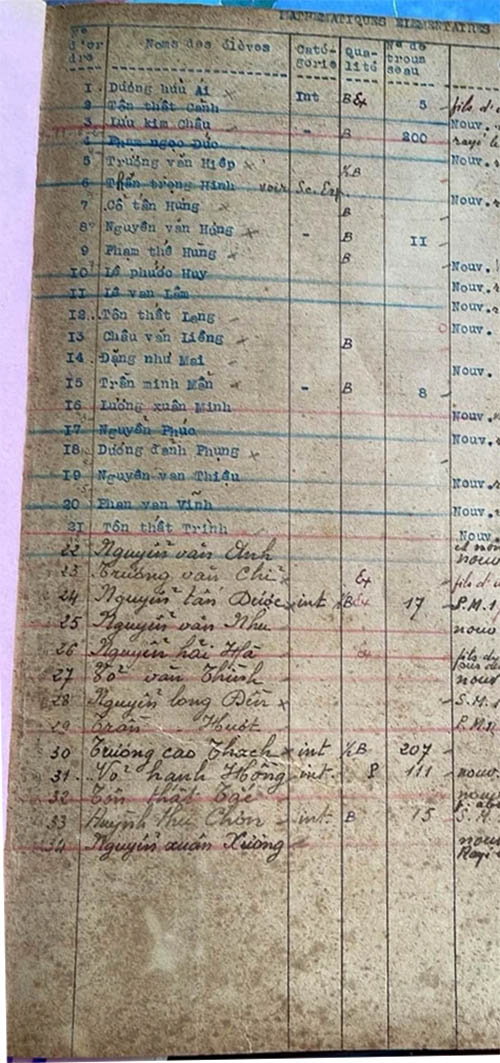 MATHEMATIQUES ELEMENTAIRES
No d'ordre Noms des élèves Catégorie Qualité No de trousseau
1 Dương hưu Ái x Int B Ex 5 fils d'
2 Tôn thất Cảnh Nouv.
3 Lưu kim Châu - B 200 rayé le
4 Phạm ngọc Đức Nouv.
5 Trương văn Hiệp x B
6 Thân trọng Hinh voir Sc. Exp. Nouv.
7 Cổ tấn Hưng x B
8 Nguyễn văn Hồng x - B 11
9 Phạm thế Hùng x B Nouv.
10 Lê phước Huy Nouv.
11 Lê van Lâm Nouv.
12 Tôn thất Lang Nouv.
13 Châu văn Liêng x B
14 Đặng như Mai Nouv.
15 Trần minh Mẫn x - B 8
16 Lương xuân Minh Nouv.
17 Nguyễn Phúc Nouv.
18 Dương đanh Phung x
19 Nguyễn van Thiệu Nouv.
20 Phan van Vinh Nouv.
21 Tôn thất Trinh Nouv.
22 Nguyễn văn Anh nouv
23 Trương văn Chi x Ex fils d'
24 Nguyễn tấn Được x int B Ex 17 S.M.
25 Nguyễn văn Nhu nouv
26 Nguyễn hải Hà fils du
27 Võ văn Thinh nouv
28 Nguyễn long Đên x S.M.
29 Trần Huơt P.M.
30 Trương cao Thạch x int B 207
31 Võ hạnh Hồng int. 111 nouv.
32 Tôn thất Tắc nouv
33 Huỳnh thu Chơn - int B 15 S.M.
34 Nguyễn xuân Xương nouv
Rayé